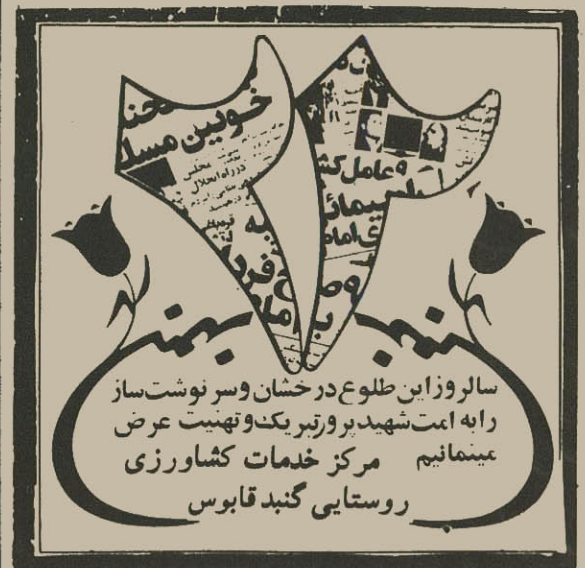 ۲۲
خونین
مجلس
در راه انحلال
عامل
بهمن
سالروز این طلوع درخشان و سرنوشت‌ساز
را به امت شهید پرور تبریک و تهنیت عرض
مینمائیم مرکز خدمات کشاورزی
روستایی گنبد قابوس